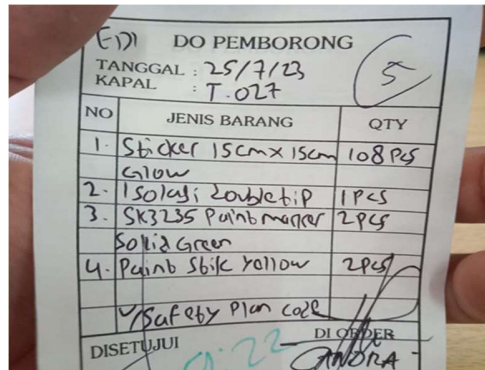 EDI DO PEMBORONG
TANGGAL : 25/7/23
KAPAL : T.027
5
NO JENIS BARANG QTY
1. Sticker 15cm x 15cm 108 Pcs
Glow
2. Isolasi Doubletip 1 Pcs
3. SK3235 Paint marker 2 Pcs
Solid Green
4. Paint Stik Yellow 2 Pcs
Safety Plan
DISETUJUI DI ORDER
ANDRA